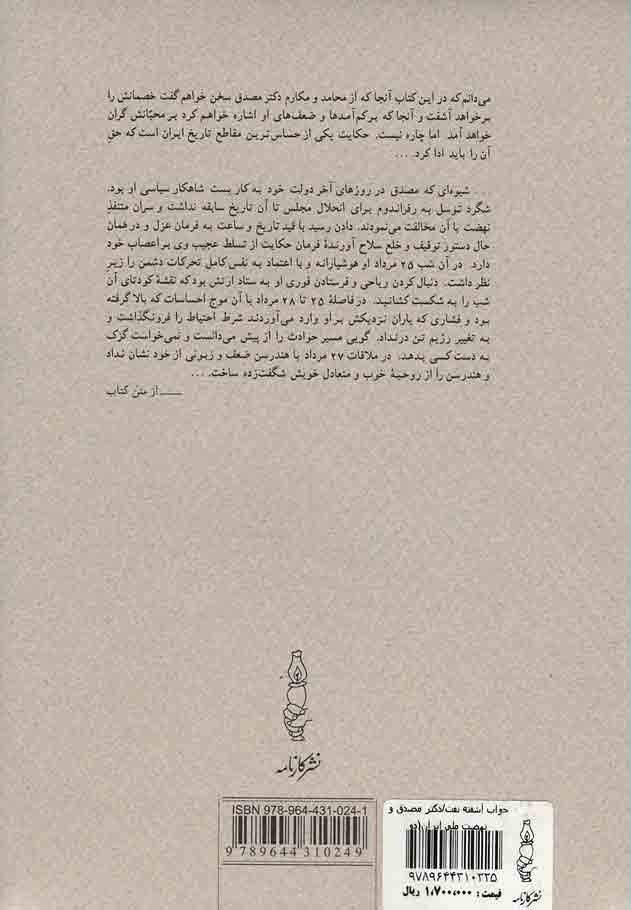 می‌دانم که در این کتاب آنجا که از محامد و مکارم دکتر مصدق سخن خواهم گفت خصمانش را
برخواهد آشفت و آنجا که برکم‌آمدها و ضعف‌های او اشاره خواهم کرد بر محبّانش گران
خواهد آمد. اما چاره نیست. حکایت یکی از حساس‌ترین مقاطع تاریخ ایران است که حقِ
آن را باید ادا کرد. ...
... شیوه‌ای که مصدق در روزهای آخر دولت خود به کار بست شاهکار سیاسی او بود.
شگرد توسل به رفراندوم برای انحلال مجلس تا آن تاریخ سابقه نداشت و سران متنفذِ
نهضت با آن مخالفت می‌نمودند. دادن رسید با قید تاریخ و ساعت به فرمان عزل و در همان
حال دستور توقیف و خلع سلاح آورندهٔ فرمان حکایت از تسلط عجیب وی بر اعصاب خود
دارد. در آن شب ۲۵ مرداد او هوشیارانه و با اعتماد به نفس کامل تحرکات دشمن را زیرِ
نظر داشت. دنبال کردن ریاحی و فرستادن فوری او به ستاد ارتش بود که نقشهٔ کودتای آن
شب را به شکست کشانید. در فاصلهٔ ۲۵ تا ۲۸ مرداد با آن موج احساسات که بالا گرفته
بود و فشاری که یاران نزدیکش بر او وارد می‌آوردند شرط احتیاط را فرونگذاشت و
به تغییر رژیم تن درنداد. گویی مسیر حوادث را از پیش می‌دانست و نمی‌خواست گزک
به دست کسی بدهد. در ملاقات ۲۷ مرداد با هندرسن ضعف و زبونی از خود نشان نداد
و هندرسن را از روحیهٔ خوب و متعادل خویش شگفت‌زده ساخت. ...
ــــ از متن کتاب
نشر کارنامه
ISBN 978-964-431-024-1
9 789644 310249
خواب آشفته نفت/دکتر مصدق و
نهضت ملی ایران (دو
۹۷۸۹۶۴۴۳۱۰۲۲۵
قیمت: ۱،۷۰۰،۰۰۰ ریال
نشر کارنامه